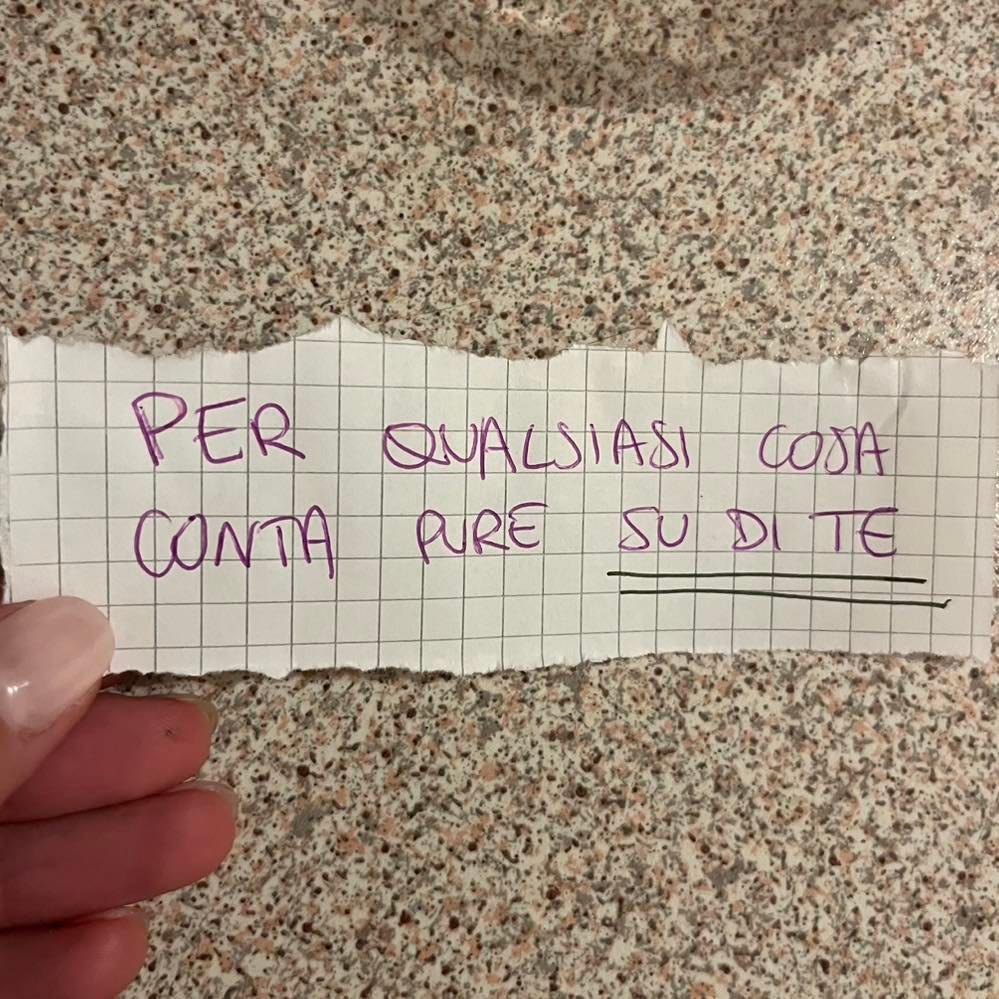 PER QUALSIASI COSA
CONTA PURE SU DI TE